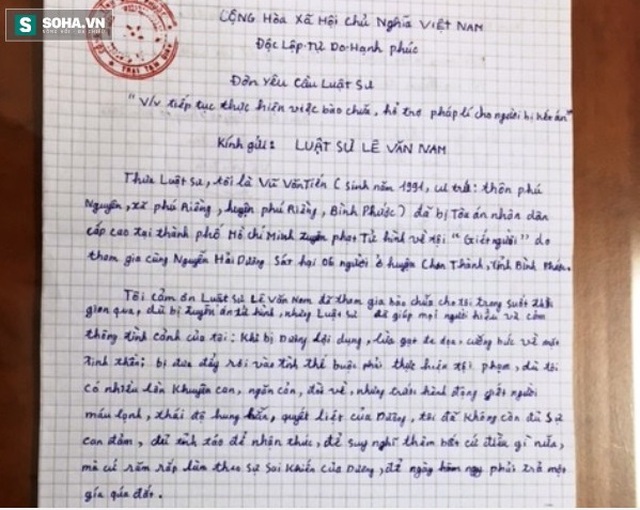 SOHA.VN
CỘNG Hòa Xã Hội Chủ Nghĩa VIỆT NAM
Độc Lập-Tự Do-Hạnh phúc
Đơn Yêu Cầu Luật Sư
"V/v tiếp tục thực hiện việc bào chữa, hỗ trợ pháp lí cho người bị kết án"
Kính gửi: LUẬT SƯ LÊ VĂN NAM
Thưa Luật sư, tôi là Vũ Văn Tiến ( sinh năm 1991, cư trú: thôn phú
Nguyên, xã phú Riềng, huyện phú Riềng, Bình Phước) đã bị Tòa án nhân dân
cấp cao tại thành phố Hồ Chí Minh tuyên phạt Tử hình về tội "Giết người" do
tham gia cùng Nguyễn Hải Dương Sát hại 06 người ở huyện Chơn Thành, tỉnh Bình Phước.
Tôi cảm ơn Luật Sư Lê Văn Nam đã tham gia bào chữa cho tôi trong suốt thời
gian qua, dù bị tuyên án tử hình, nhưng Luật Sư đã giúp mọi người hiểu và cảm
thông tình cảnh của tôi: Khi bị Dương lợi dụng, lừa gạt đe dọa, cưỡng bức về mặt
tinh thần; bị đưa đẩy rơi vào tình thế buộc phải thực hiện tội phạm, dù tôi
có nhiều lần Khuyên can, ngăn cản, đòi về, nhưng trước hành động giết người
máu lạnh, thái độ hung hãn, quyết liệt của Dương, tôi đã không còn đủ Sự
can đảm, đủ tỉnh táo để nhận thức, để suy nghĩ thêm bất cứ điều gì nữa,
mà cứ răm rắp làm theo Sự Sai Khiến của Dương, để ngày hôm nay phải trả một
giá quá đắt.